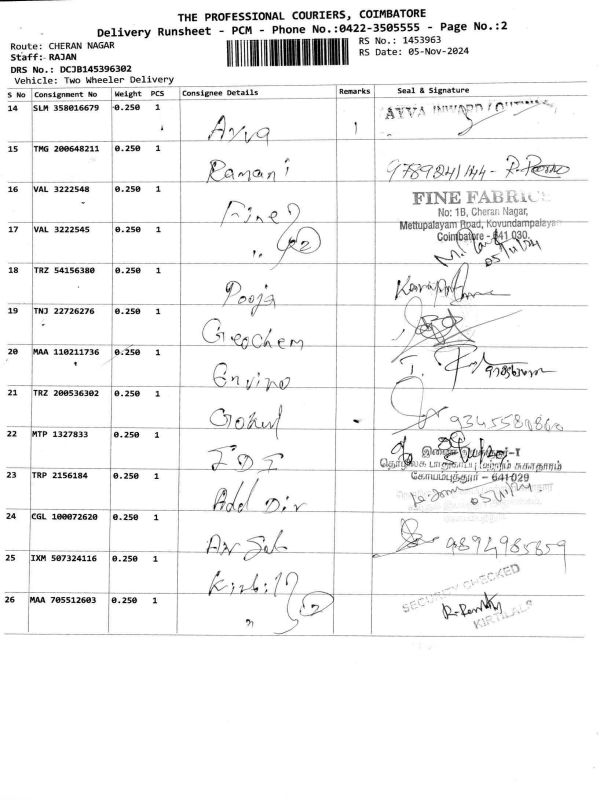 THE PROFESSIONAL COURIERS, COIMBATORE
Delivery Runsheet - PCM - Phone No.:0422-3505555 - Page No.:2
Route: CHERAN NAGAR
RS No.: 1453963
Staff: RAJAN
RS Date: 05-Nov-2024
DRS No.: DCJB145396302
Vehicle: Two Wheeler Delivery
S No Consignment No Weight PCS Consignee Details Remarks Seal & Signature
14 SLM 358016679 0.250 1
Ayva
15 TMG 200648211 0.250 1
Ramani
16 VAL 3222548 0.250 1
Fine
FINE FABRICS
No: 1B, Cheran Nagar,
Mettupalayam Road, Kovundampalayam
Coimbatore - 641 030.
17 VAL 3222545 0.250 1
" 2
05/11/24
18 TRZ 54156380 0.250 1
Pooja
19 TNJ 22726276 0.250 1
Geochem
20 MAA 110211736 0.250 1
Enviro
21 TRZ 200536302 0.250 1
Gokul
22 MTP 1327833 0.250 1
தொழிலக பாதுகாப்பு மற்றும் சுகாதாரம்
கோயம்புத்தூர் - 641029
23 TRP 2156184 0.250 1
Addl Dir
05/11/24
24 CGL 100072620 0.250 1
9894985659
25 IXM 507324116 0.250 1
SECURITY CHECKED
26 MAA 705512603 0.250 1
" 2
KIRTILALS